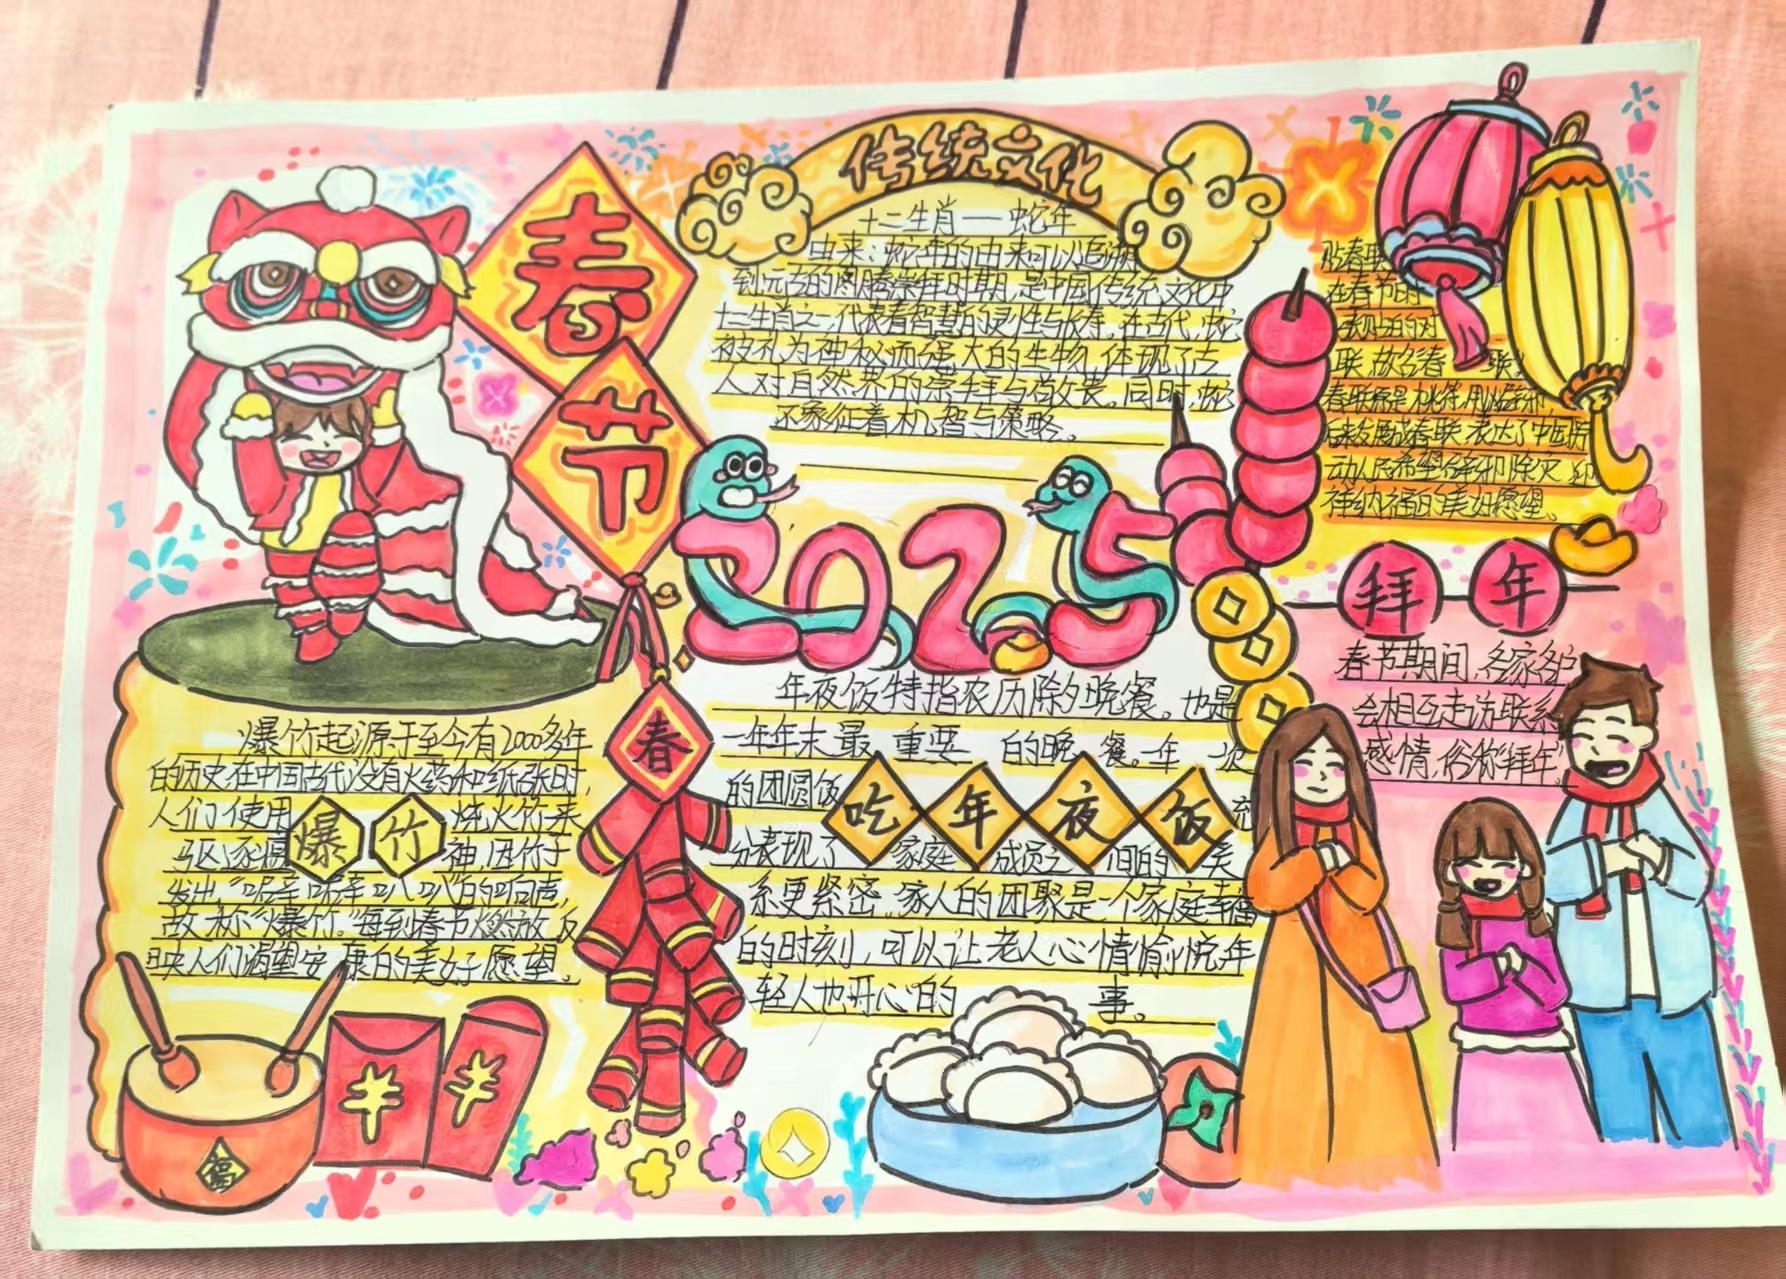 春节
传统文化
十二生肖——蛇年
由来：蛇年的由来可以追溯
到元古的图腾崇拜时期，是中国传统文化中
十二生肖之一，代表着智慧的灵性与长寿。在古代，蛇
被礼为神秘而强大的生物，体现了古
人对自然界的崇拜与敬畏。同时，蛇
还象征着机智与策略。
2025
贴春联
在春节时
张贴的对
联，故名春联。
春联原是桃符，用以驱邪，
后来发展成春联，表达了中国劳
动人民希望辟邪除灾、迎
祥纳福的美好愿望。
拜年
春节期间，各家各户
会相互走访联系
感情，俗称“拜年”。
爆竹起源于至今有2000多年
的历史，在中国古代没有火药和纸张时，
人们使用 火烧竹来
爆竹
驱逐瘟神，因竹子
发出“噼啪噼啪叭叭”的响声，
故称“爆竹”。每到春节燃放，反
映人们渴望安康的美好愿望。
春
年夜饭特指农历除夕晚餐。也是
一年年末最重要的晚餐。一年一次
的团圆饭
吃年夜饭
充
分表现了家庭成员之间的关
系更紧密。家人的团聚是一个家庭幸福
的时刻，可以让老人心情愉悦，年
轻人也开心的事。
福